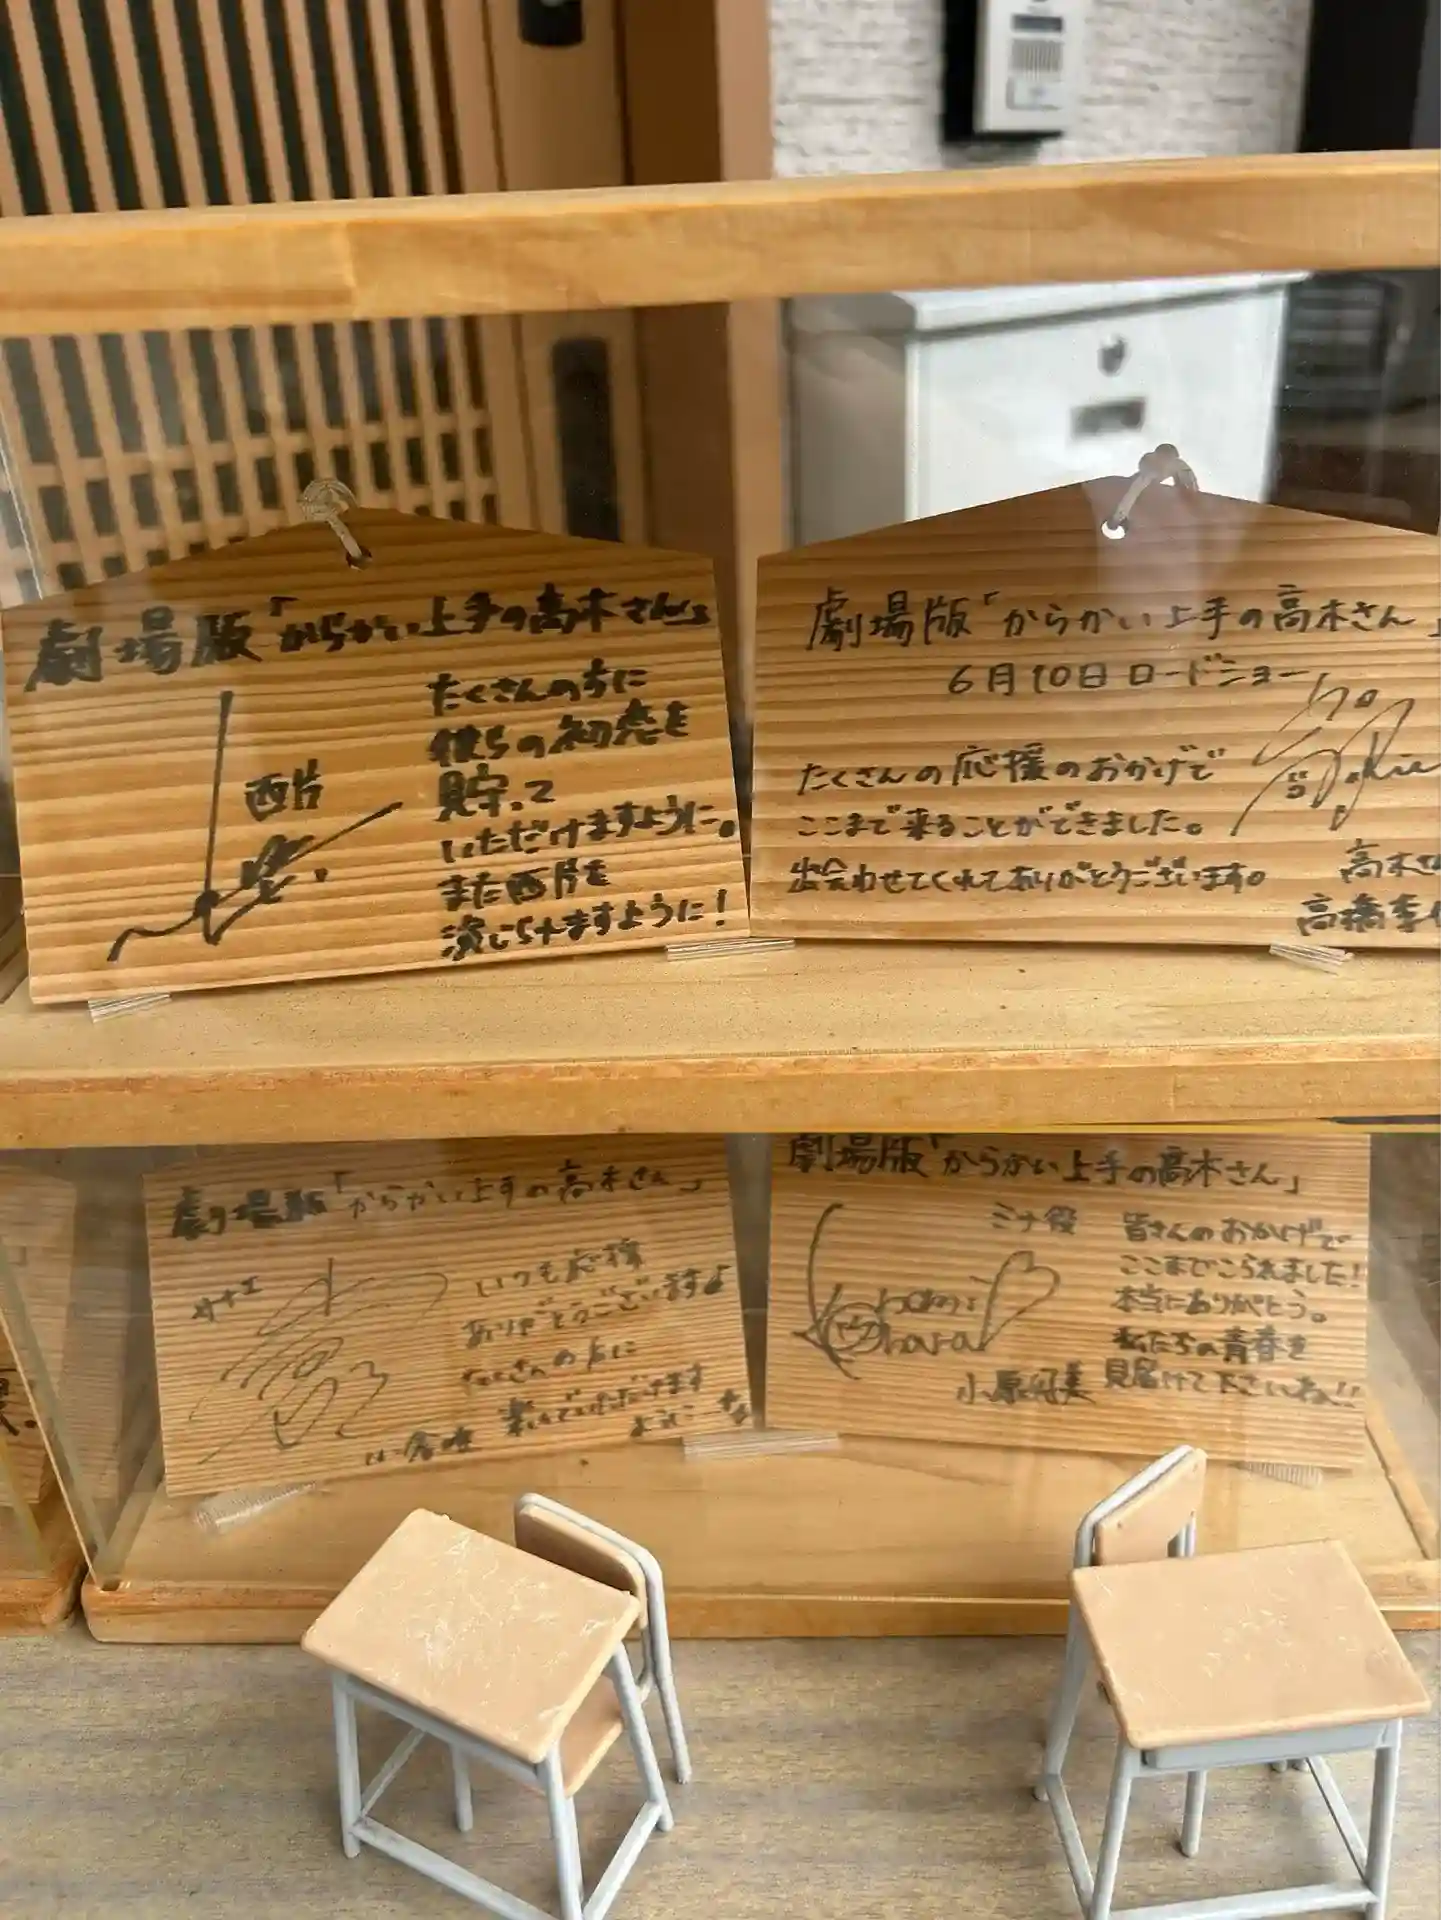 劇場版「からかい上手の高木さん」
西片
たくさんの方に
彼らの初恋を
見守って
いただけますように。
また西片を
演じられますように!
劇場版「からかい上手の高木さん」
6月10日 ロードショー
たくさんの応援のおかげで
ここまで来ることができました。
出会わせてくれてありがとうございます。
高木さ
高橋李
劇場版「からかい上手の高木さん」
サナエ
いつも応援
ありがとうございます♪
たくさんの方に
楽しんでいただけます
ように
小倉唯
劇場版「からかい上手の高木さん」
ミナ役
皆さんのおかげで
ここまでこられました!
本当にありがとう。
私たちの青春を
見届けて下さいね!!
Konomi
Kohara
小原好美